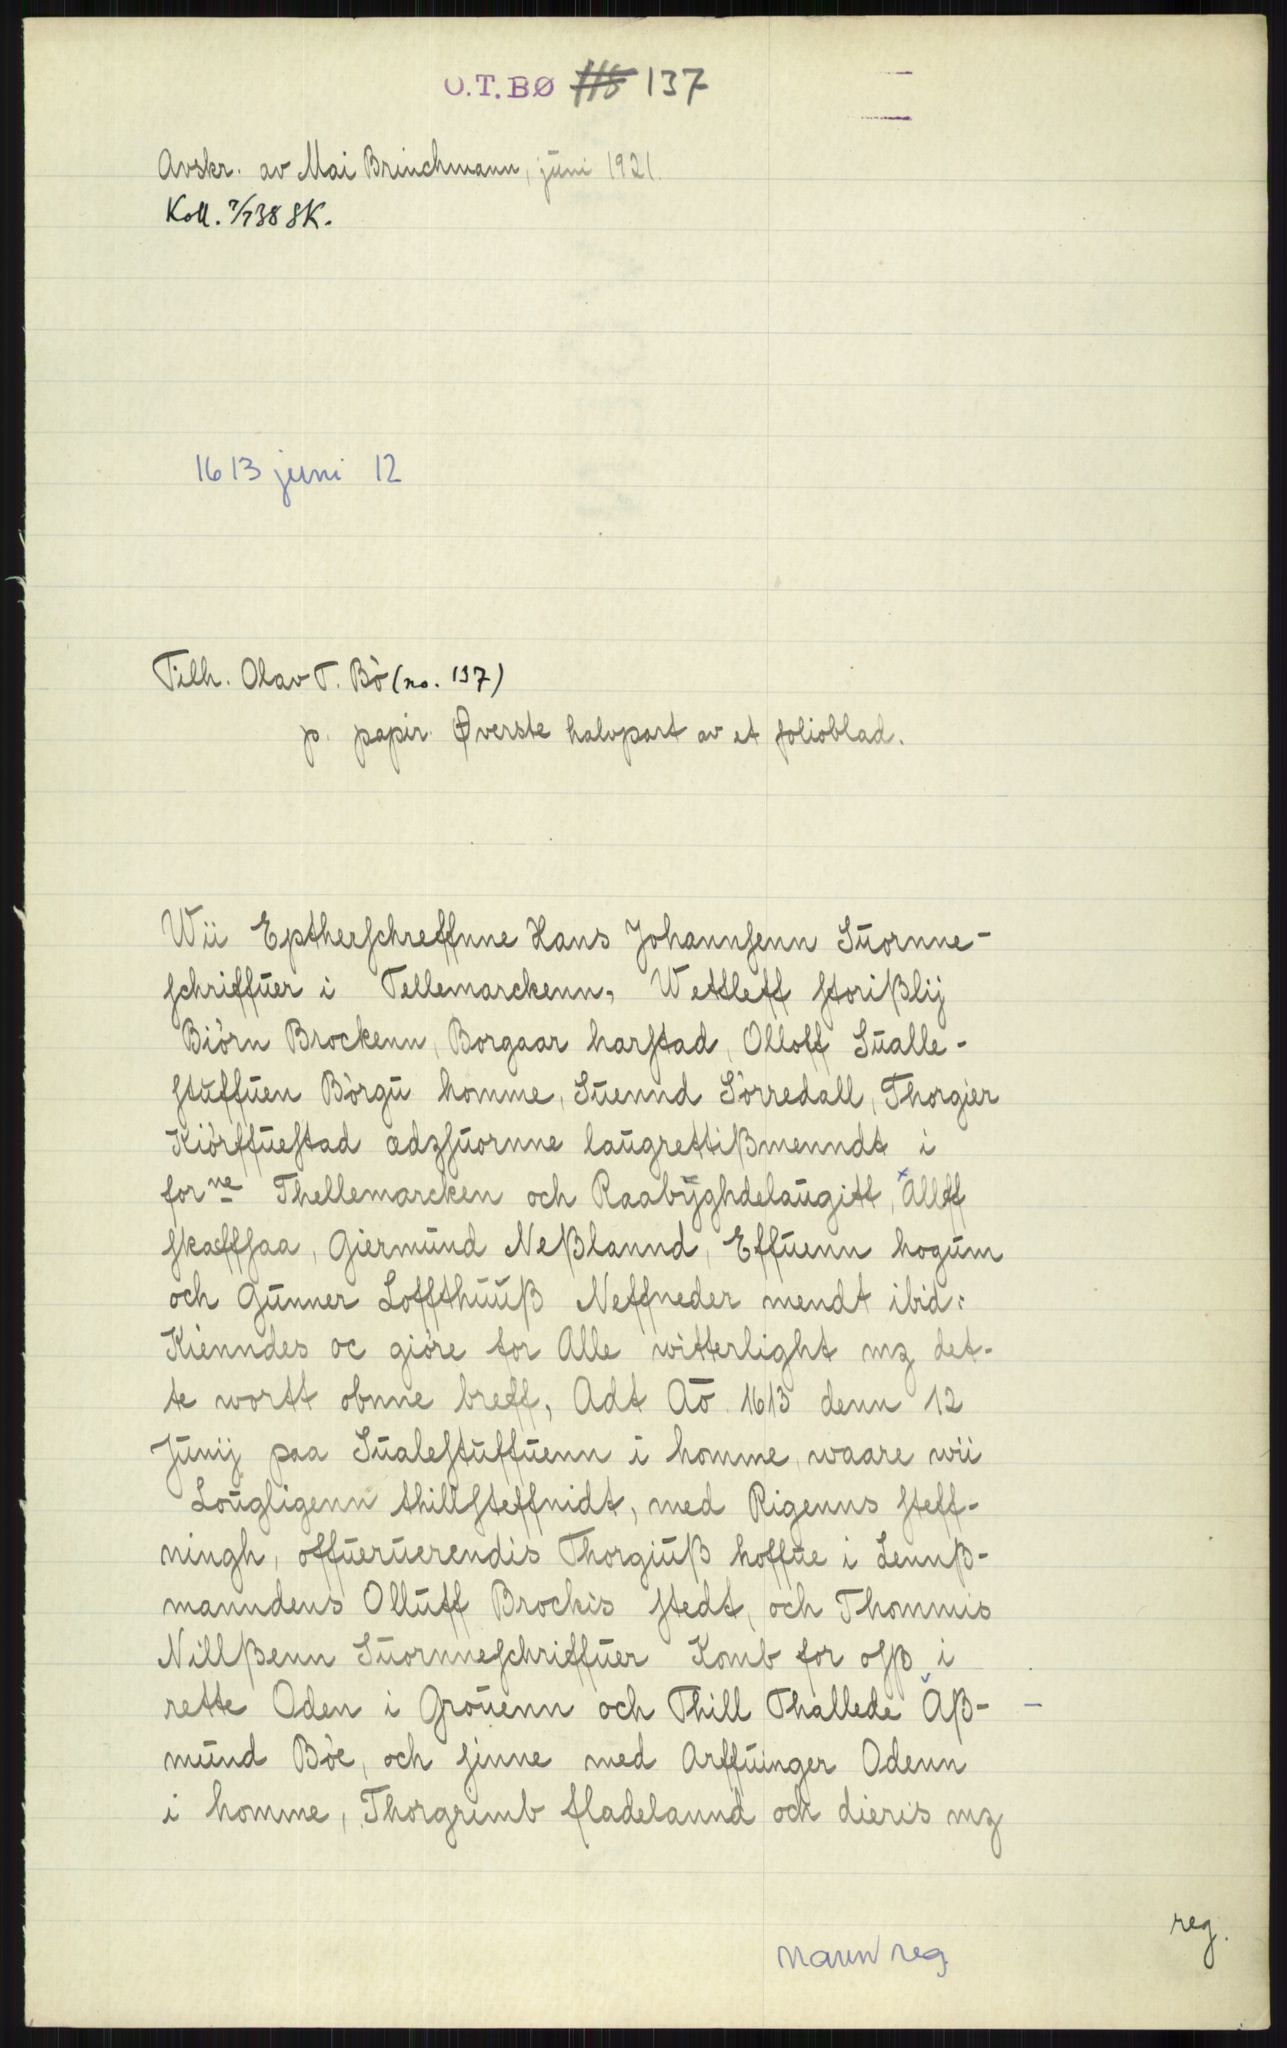 O.T.BØ 118 137
Avskr. av Mai Brinchmann, juni 1921.
Koll. 7/7 38 SK.
1613 juni 12
Tilh. Olav T. Bö (no. 137)
p. papir. Øverste halvpart av et folioblad.
Wii Eptherschreffnne Hans Johannsenn Suornne-
schriffuer i Tellemarckenn, Wettleff storißlij
Biörn Brockenn, Borgaar harstad, Olloff Sualle-
stuffuen Börgu homme, Suennd Sörredall, Thorgier
Kiörffuestad ædzsuornne laugrettißmenndt i
forne Thellemarcken och Raabÿghdelaugitt, Alleff
skaffsaa, Giermund Neßlannd, Effuenn hogum
och Gunner Loffthuuß Neffneder mendt ibid:
Kienndes oc giöre for Alle witterlight mz det-
te wortt obnne breff, Adt Aō 1613 denn 12
Junij paa Sualestuffuenn i homme, waare wii
Lougligenn thillsteffnidt, med Rigenns steff-
ningh, offueruerendis Thorgiuß hoffue i Lennß-
manndens Olluff Brockis stedt, och Thommis
Nillßenn Suornneschriffuer Komb for osß i
rette Oden i Grouenn och Thill Thallede Aß-
mund Böe, och sinne med Arffuinger Odenn
i homme, Thorgrimb fladelannd och dieris mz
reg.
navn reg.